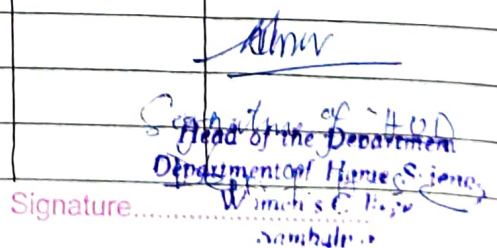 Signature of HOD
Head of the Department
Department of Home Science,
Women's College
Signature..............................
Sambalpur